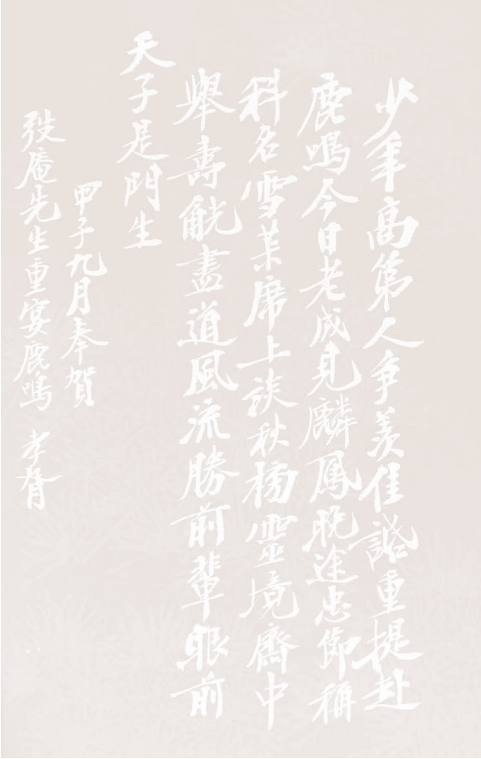 少年高第人爭羨佳話重提赴
鹿鳴今日老成見麟鳳晚途忠節稱
科名雪席上談秋榜靈境齋中
舉壽觥盡道風流勝前輩眼前
天子是門生
甲子九月奉賀
弢庵先生重宴鹿鳴 孝胥